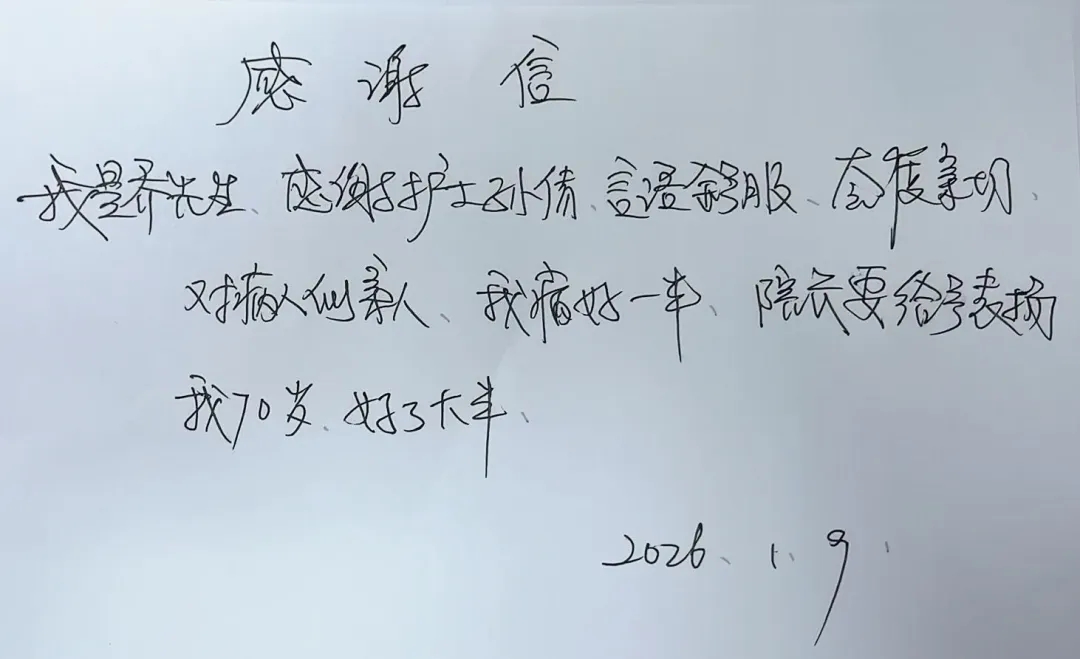 感谢信
我是乔先生、感谢护士孙倩、言语舒服、态度亲切、
对病人似亲人、我病好一半、院方要给与表扬
我70岁、好了大半、
2026、1、9、